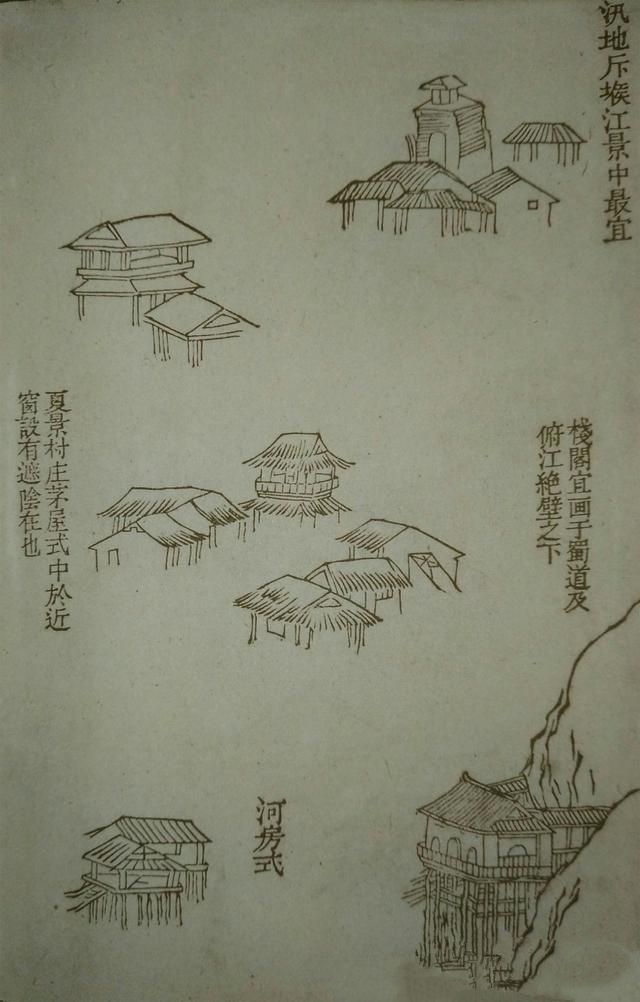 汛地斥堠江景中最宜
棧閣宜画于蜀道及
俯江絶壁之下
夏景村庄茅屋式中於近
窗設有遮陰在也
河房式